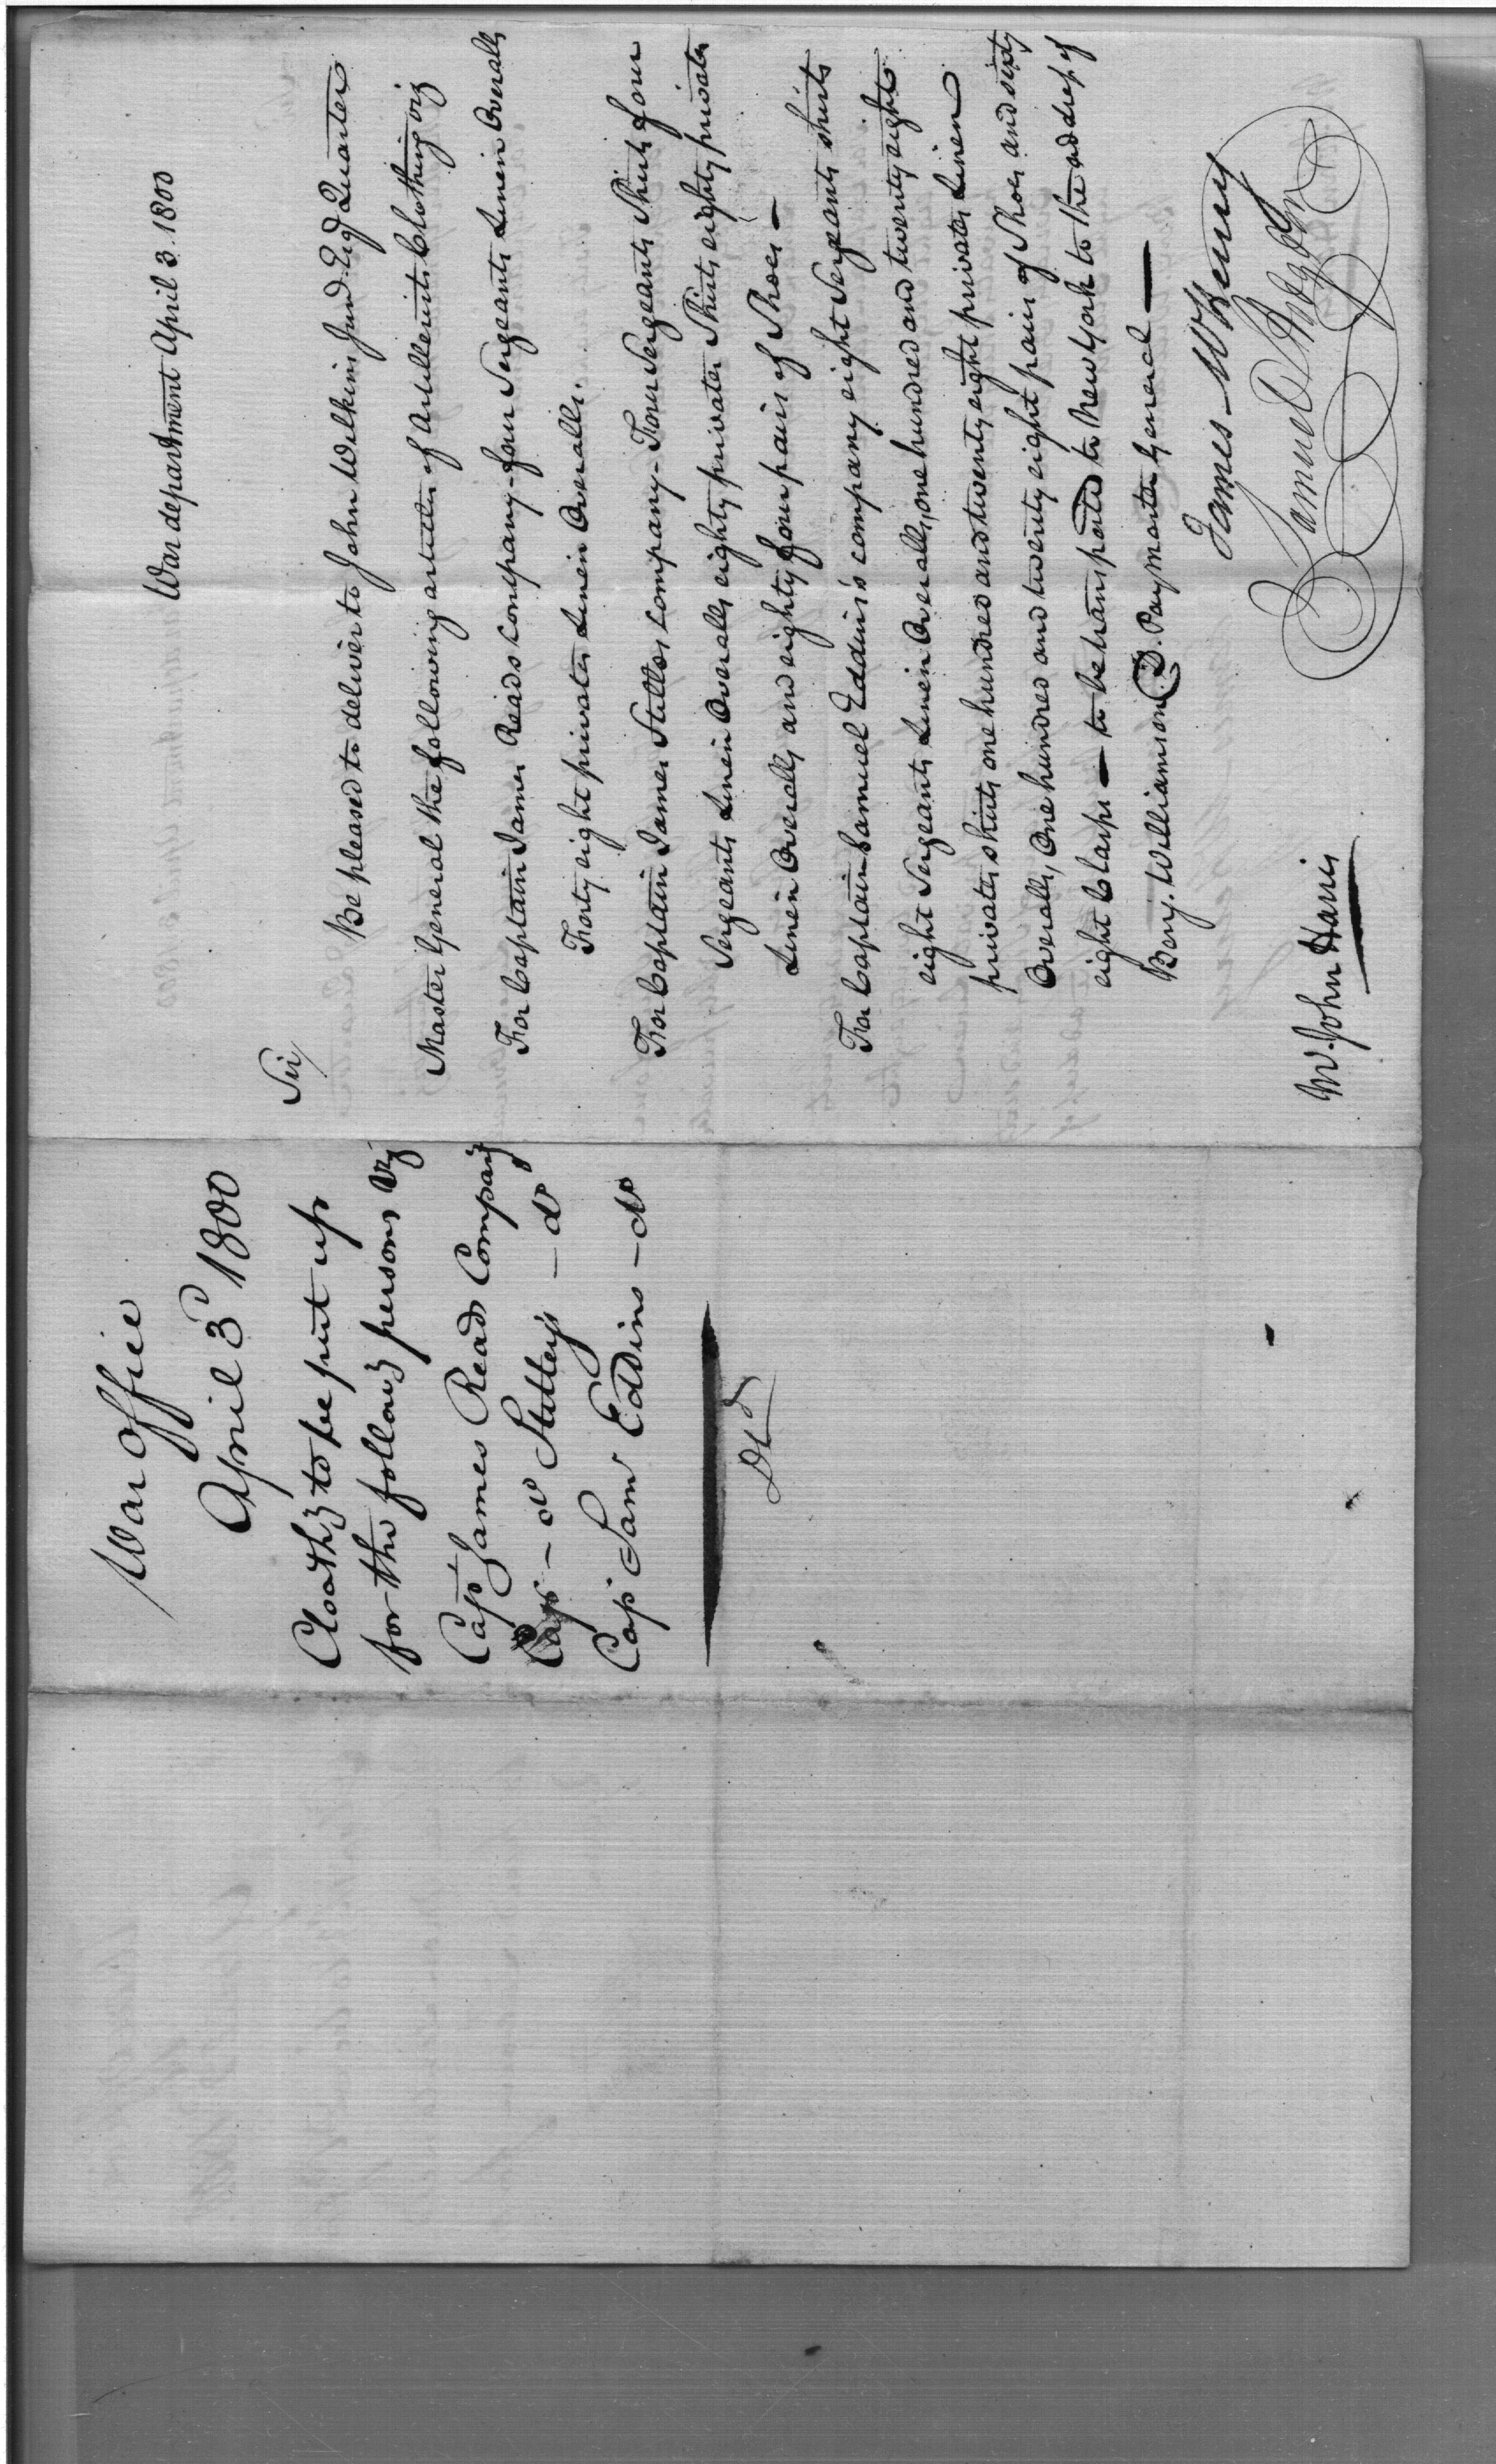 War department April 3. 1800
Sir,
Be pleased to deliver to John Wilkins Junr. Esqr Quarter
Master General the following articles of Artillerists Clothing viz
For Captain James Reads company - four Sergeants Linen Overalls
Forty eight privates Linen Overalls.
For Captain James Stilles company - Four Sergeants Shirts four
Sergeants Linen Overalls eighty privates Shirts eighty privates
Linen Overalls and eighty four pairs of Shoes —
For Captain Samuel Eddins's company eight Sergeants shirts
eight Sergeants Linen Overalls, one hundred and twenty eight
privates shirts one hundred and twenty eight privates Linen
Overalls, One hundred and twenty eight pairs of Shoes and sixty
eight Clasps — to be transported to New York to the address of
Benj. Williamson D. Paymaster General —
James McHenry
Samuel Hodgdon
Mr. John Harris
War Office
April 3d 1800
Cloathg to be put up
for the followg persons Viz
Capt James Reads Company
Cap — do Stilleys — do
Cap Sam Eddins — do
Dd